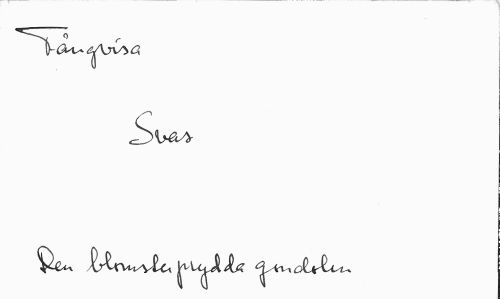 Fångvisa
Svas
Den blomsterprydda gondolen